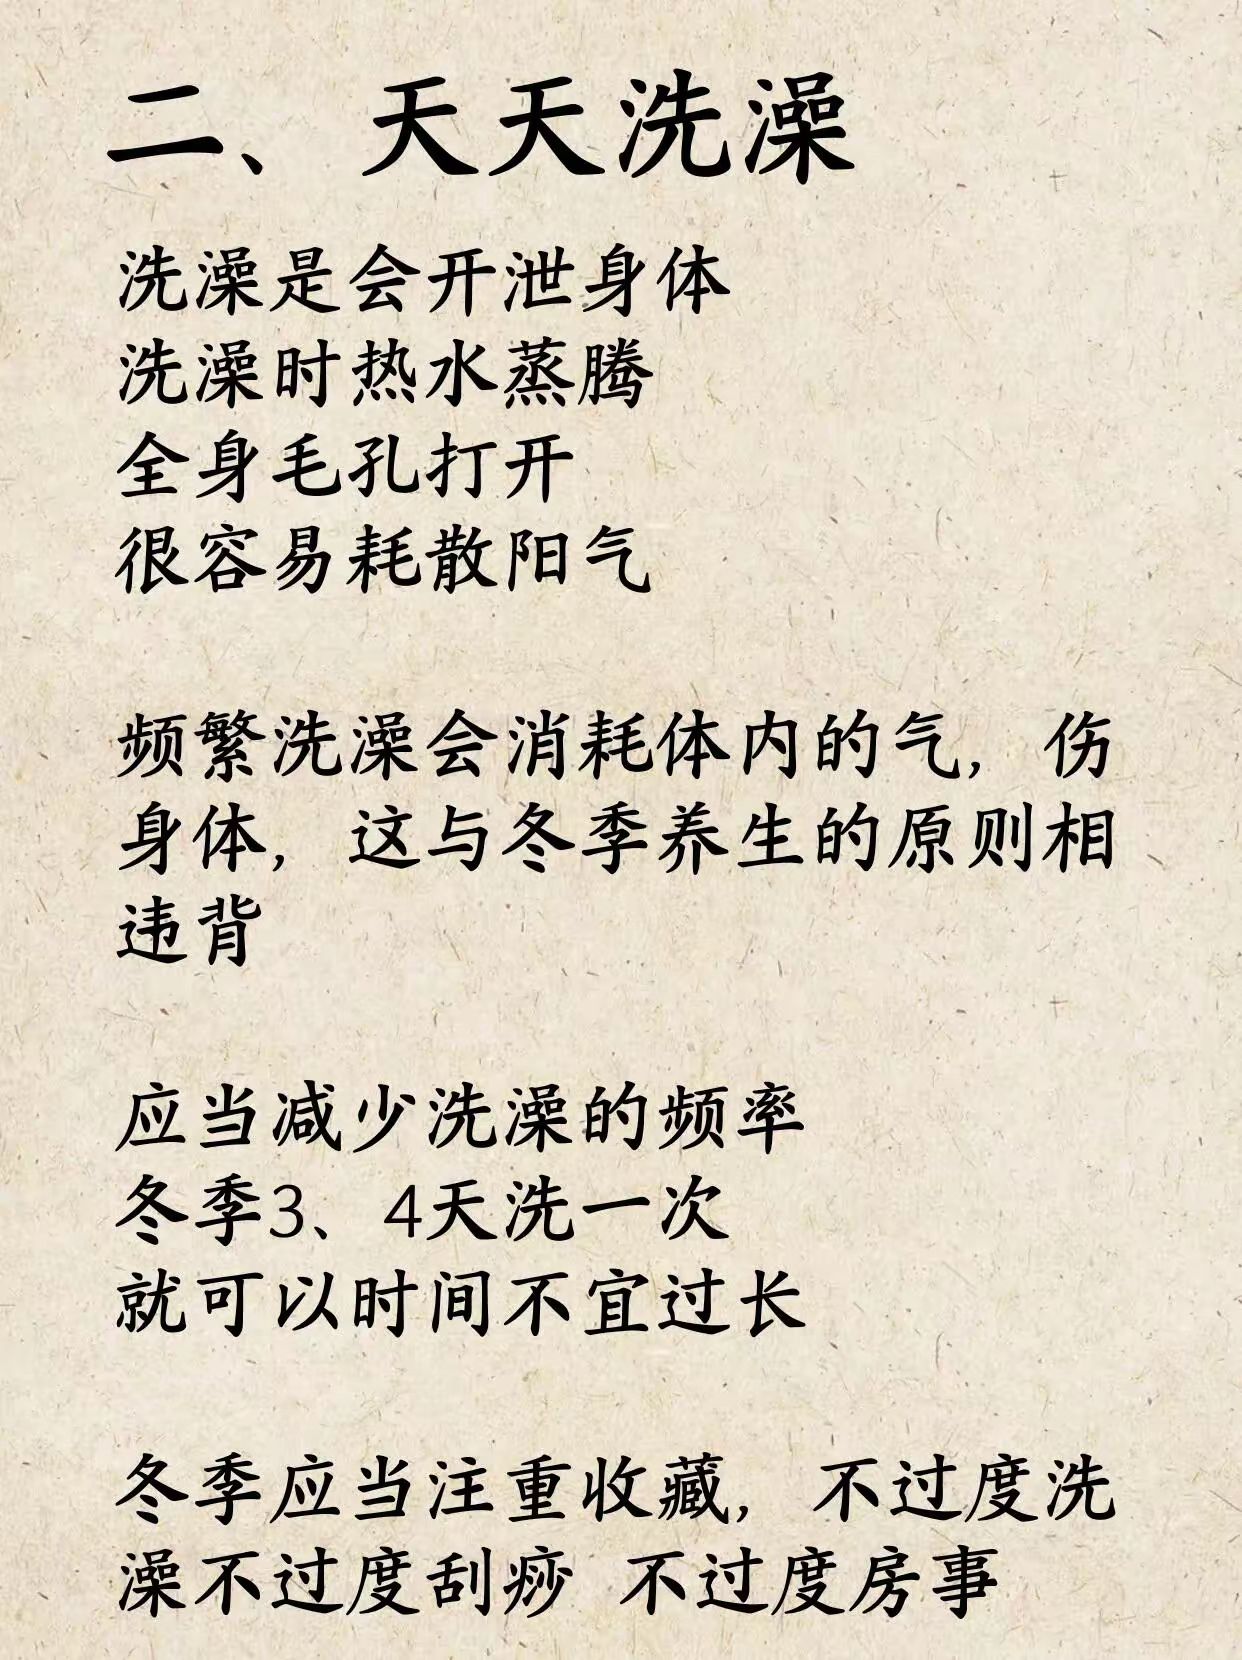 二、天天洗澡
洗澡是会开泄身体
洗澡时热水蒸腾
全身毛孔打开
很容易耗散阳气
频繁洗澡会消耗体内的气，伤
身体，这与冬季养生的原则相
违背
应当减少洗澡的频率
冬季3、4天洗一次
就可以时间不宜过长
冬季应当注重收藏，不过度洗
澡不过度刮痧 不过度房事